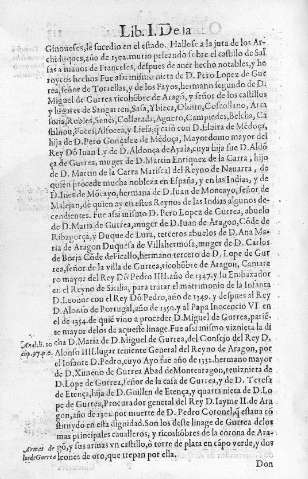 Lib. I. De la
Ginoueses, le sucedio en el estado. Hallose a la jura de los Ar-
chiduques, año de 1502. murio peleando sobre el castillo de Salsas
a manos de Franceses, despues de auer hecho notables, y he
roycos hechos Fue assi mismo nieta de D. Pero Lopez de Gur
rea, señor de Torrellas, y de los Fayos, hermano segundo de D.
Miguel de Gurrea ricohōbre de Aragō, y señor de los castillos
y lugares de Sangarren,
Robres, Senes, Collarada, Aguero, Campiedes, Belchit,
y casò con D. Eluira de Mēdoça,
hija de D. Pero Gonçalez de Mēdoça, Mayordomo mayor del
Rey Dō Iuan I. y de D. Aldonça de Ayala, cuyo hija fue D. Aldō
ça de Gurrea, muger de D. Martin Enriquez de la Carra, hijo
de D. Martin de la Carra Mariscal del Reyno de Nauarra, de
quiē procede mucha nobleza en España, y en las Indias, y de
D. Ines de Mōcayo, hermana de D. Iuan de Moncayo, señor de
Malejan, de quien ay en estos Reynos de las Indias algunos de-
cendientes. Fue assi mismo D. Pero Lopez de Gurrea, abuelo
de D. Maria de Gurrea, muger de D. Iuan de Aragon, Cōde de
Ribagorça, y Duque de Luna, terceros abuelos de D. Ana Ma-
ria de Aragon Duquesa de Villahermosa, muger de D. Carlos
de Borja Cōde de Ficallo, hermano tercero de D. Lope de Gur
rea, señor de la villa de Gurrea, ricohōbre de Aragon, Camare
ro mayor del Rey Dō Pedro IIII. año de 1347. y su Embaxador
en el Reyno de Sicilia, para tratar el matrimonio de la Infanta
D. Leonor con el Rey Dō Pedro, año de 1349. y despues al Rey
D. Alonso de Portugal, año de 1350. y al Papa Inocencio VI. en
el de 1354. de quiē vino a proceder D. Miguel de Gurrea, parien
te mayor delos de aquelle linage. Fue assi mismo viznieta la di
cha D. Maria de D. Miguel de Gurrea, del Consejo del Rey D.
Alonso IIII. lugarteniente General del Reyno de Aragon, por
el Infante D. Pedro, cuyo Ayo fue año de 1331. hermano mayor
de D. Ximeno de Gurrea Abad de Montearagon, terniznieta de
D. Lope de Gurrea, señor de la casa de Gurrea, y de D. Teresa
de Entença, hija de D. Guillen de Entença, y quarta nieta de D. Lo
pe de Gurrea, Procurador general del Rey D. Iayme II. de Ara-
gon, año de 1302. por muerte de D. Pedro Coronel, q̄ estaua cō
stituydo en esta dignidad. Son los deste linage de Gurrea delos
mas principales caualleros, y ricoshōbres de la corona de Ara-
gō, y sus armas vn castillo, ò torre de plata en capo verde, y dos
leones de oro, que trepan por ella.
Armas de
los de Gurrea
Don